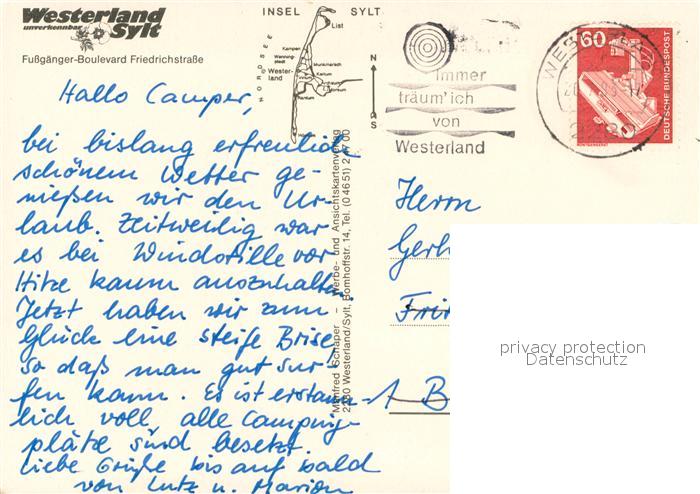 Westerland
unverkennbar Sylt
Fußgänger-Boulevard Friedrichstraße
INSEL SYLT
NORDSEE
List
Kampen
Wenning-
stedt
Wester-
land
Munkmarsch
Keitum
Archsum
Morsum
Rantum
N
S
immer
träum'ich
von
Westerland
60
DEUTSCHE BUNDESPOST
RÖNTGENGERÄT
2280
Hallo Camper,
bei bislang erfreulich
schönem Wetter ge-
nießen wir den Ur-
laub. Zeitweilig war
es bei Windstille vor
Hitze kaum auszuhalten.
Jetzt haben wir zum
Glück eine steife Brise
so daß man gut sur-
fen kann. Es ist erstaun-
lich voll, alle Camping-
plätze sind besetzt.
Liebe Grüße bis auf bald
von Lutz u. Marion
Manfred Schaper – Werbe- und Ansichtskartenverlag
2280 Westerland/Sylt, Bomhoffstr. 14, Tel. (04651)
Herrn
Gerh
Fri
1 B
privacy protection
Datenschutz